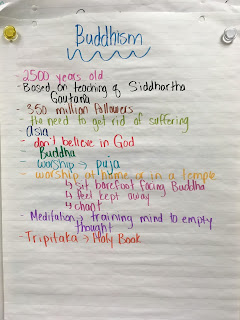 Buddhism
2500 years old
- Based on teaching of Siddhartha
Gautama
- 350 million followers
- the need to get rid of suffering
- Asia
- don't believe in God
- Buddha
- worship → puja
worship at home or in a temple
↳ sit barefoot facing Buddha
↳ feet kept away
↳ chant
- Meditation → training mind to empty
thought
- Tripitaka → Holy Book